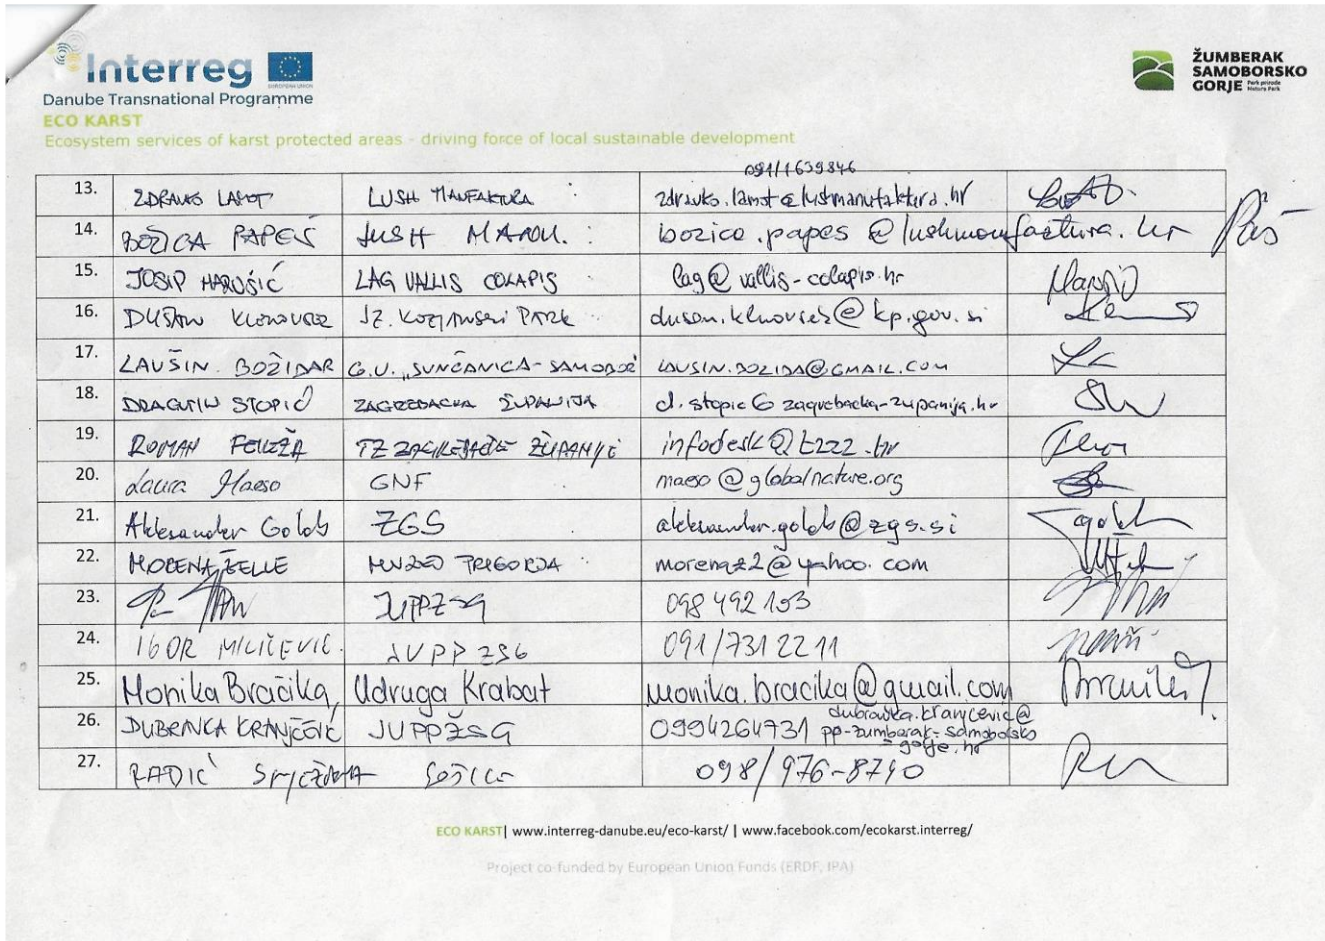 Interreg
EUROPEAN UNION
Danube Transnational Programme
ECO KARST
Ecosystem services of karst protected areas - driving force of local sustainable development
ŽUMBERAK
SAMOBORSKO
GORJE Park prirode
Nature Park
091/1639846
13. ZDRAVKO LAMOT LUSH MANUFAKTURA zdravko.lamot@lushmanufaktura.hr
14. BOŽICA PAPEŠ LUSH bozica.papes@lushmanufactura.hr
15. JOSIP HARUŠIĆ LAG VALLIS COLAPIS lag@vallis-colapis.hr
16. DUŠAN KLENOVŠEK JZ. KOZJANSKI PARK dusan.klenovsek@kp.gov.si
17. LAUŠIN BOŽIDAR G.U. "SUNČANICA-SAMOBOR" LAUSIN.BOZIDA@GMAIL.COM
18. DRAGUTIN STOPIĆ ZAGREBAČKA ŽUPANIJA d.stopic@zagrebacka-zupanija.hr
19. ROMAN TZ ZAGREBAČKE ŽUPANIJE infodesk@tzzz.hr
20. Laura Maeso GNF maeso@globalnature.org
21. Aleksander Golob ZGS aleksander.golob@zgs.si
22. MORENA ŽELLE MUZEJ PRIGORJA morenaz2@yahoo.com
23. JUPPZSG 098 492 153
24. IGOR MILIČEVIĆ JUPPZSG 091/731 22 11
25. Monika Bračika, Udruga Krabat monika.bracika@gmail.com
26. DUBRAVKA KRANJČEVIĆ JUPPŽSG 0994264731 dubravka.kranjcevic@
pp-zumberak-samoborsko
-gorje.hr
27. RADIĆ SNJEŽANA SOŠICE 098/976-8740
ECO KARST| www.interreg-danube.eu/eco-karst/ | www.facebook.com/ecokarst.interreg/
Project co-funded by European Union Funds (ERDF, IPA)